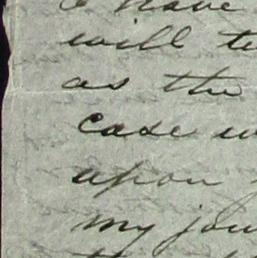 I have
will te
as the
case w
upon
my jou